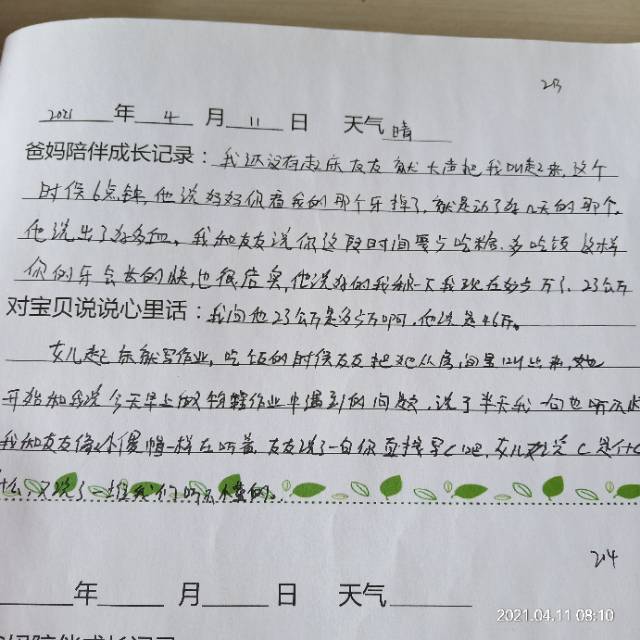 213
2021 年 4 月 11 日 天气 晴
爸妈陪伴成长记录：我还没有起床友友就大声把我叫起来，这个
时候6点钟，他说妈妈你看我的那个牙掉了，就是动了好几天的那个，
他说出了好多血，我和友友说你这段时间要少吃糖，多吃饭这样
你的牙会长的快，也很结实，他说好的我称一下我现在好多斤了，23公斤
对宝贝说说心里话：我问他23公斤是多少斤啊，他说是46斤。
女儿起床就写作业，吃饭的时候友友把她从房间里叫出来，她
开始和我说今天早上做物理作业中遇到的问题，说了半天我一句也听不
我和友友像个傻帽一样在听着，友友说了一句你直接写C吧，女儿说C是什
什么，又说了一堆我们听不懂的。
214
年 月 日 天气
妈陪伴成长记录
2021.04.11 08:10